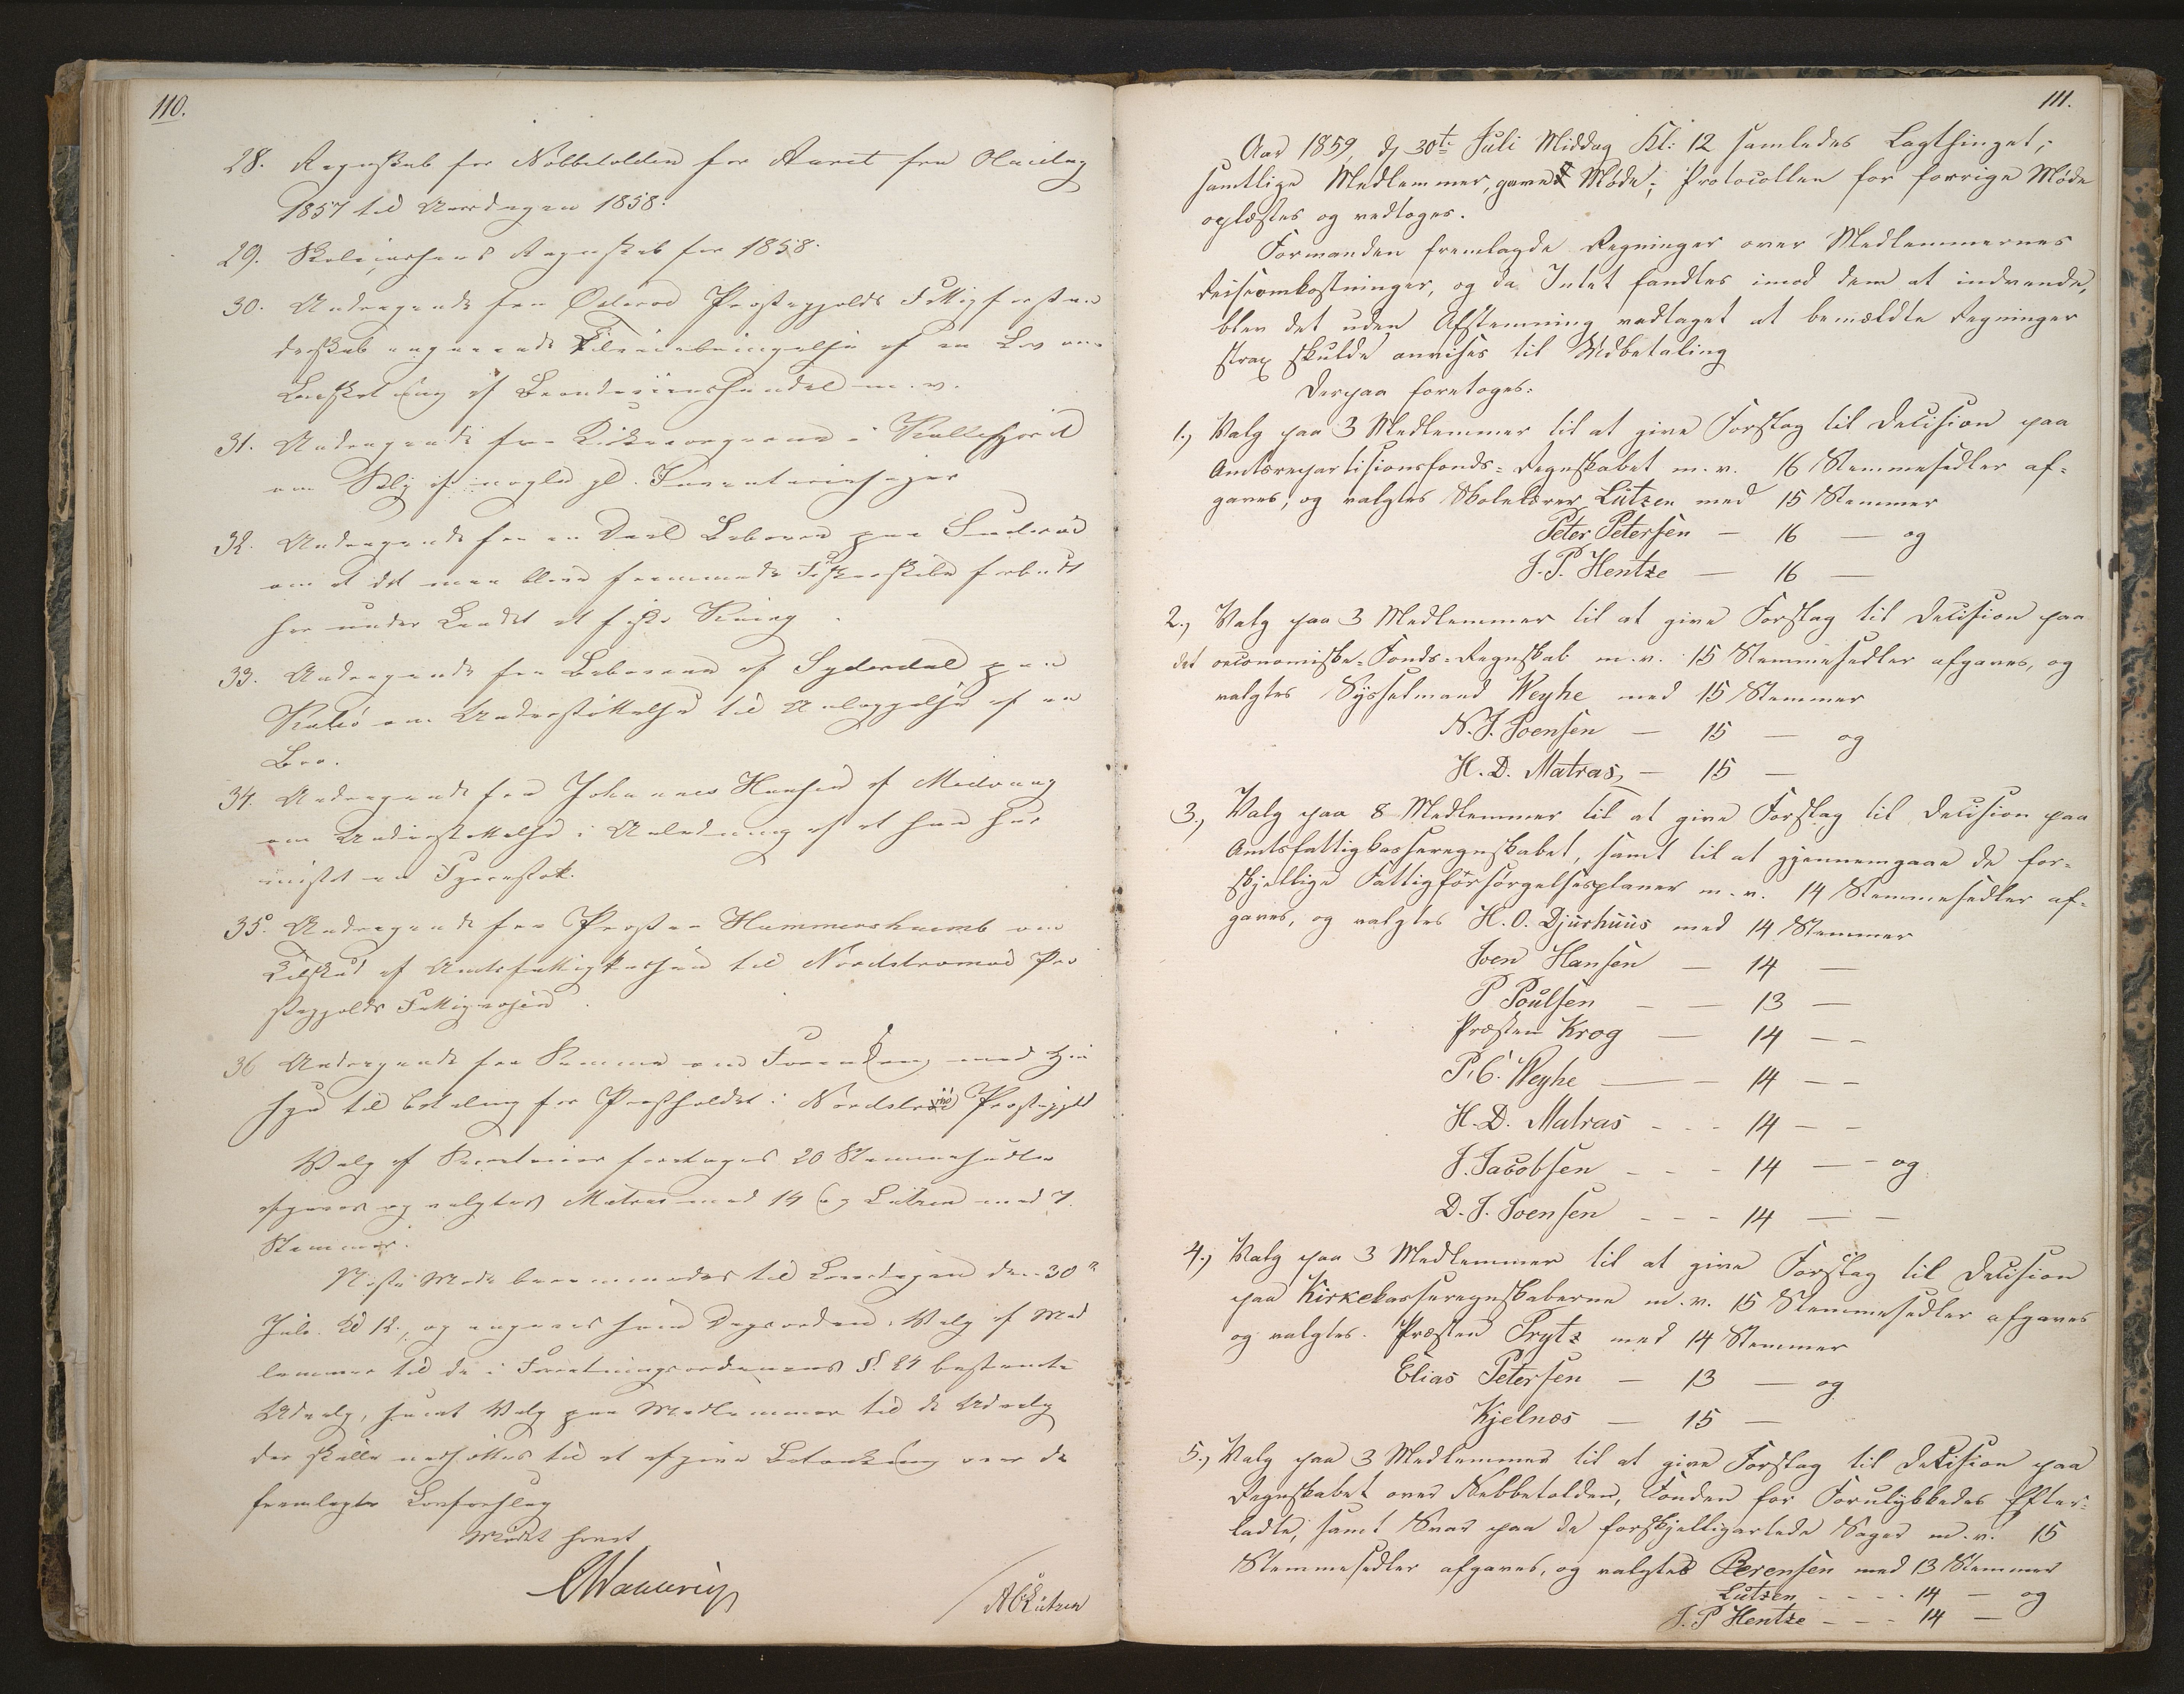 110.
28. Regnskab for Nøbbetolden for Aaret fra Olaidag
1857 til Aarsdagen 1858.
29. Skolekassens Regnskab for 1858.
30. Andragende fra Østerøe Præstegjelds Fattigforstan-
derskab angaaende Tilveiebringelse af en Lov om
Beskatning af Brændeviinshandel m. v.
31. Andragende fra Kirkeværgerne i Kollefjord
om Salg af nogle gl. Inventariesager
32. Andragende fra en Deel Beboere paa Suderøe
om at det maa blive fremmede Fiskerskibe forbudt
her under Landet at fiske
33. Andragende fra Beboerne af Syderdal paa
Kalsø om Understøttelse til Anlæggelse af en
Bro.
34. Andragende fra Johannes Hansen af Midvaag
om Understøttelse i Anledning af at han har
mistet en
35. Andragende fra Præsten Hammershaimb om
Tilskud af Amtsfattigkassen til Nordstrømøe Præ
stegjelds Fattigvæsen.
36 Andragende fra Samme om Forandring med Hen
syn til betaling for Præsteholdet i Nordstrømø Præstegjeld
Valg af Secretairer foretoges 20 Stemmesedler
afgaves og valgtes Matras med 14 og Lützen med 7.
Stemmer.
Næste Møde berammedes til Løverdagen den 30te
Juli Kl 12., og angaves som Dagsorden: Valg af Med
lemmer til de i Forretningsordenens §. 24 bestemte
Udvalg, samt Valg paa Medlemmer til de Udvalg
der skulle nedsættes til at afgive Betænkning over de
fremlagte Lovforslag
Mødet hævet
CDahlerup
ACLützen
111.
Aar 1859, d. 30te Juli Middag Kl: 12 samledes Lagthinget;
samtlige Medlemmer, gave Møde; Protocollen for forrige Møde
oplæstes og vedtoges.
Formanden fremlagde Regninger over Medlemmernes
Reiseomkostninger, og da Intet fandtes imod dem at indvende,
blev det uden Afstemning vedtaget at bemældte Regninger
strax skulde anvises til Udbetaling
Derpaa foretoges:
1., Valg paa 3 Medlemmer til at give Forslag til Decision paa
Amtsrepartisionsfonds-Regnskabet m. v. 16 Stemmesedler af-
gaves; og valgtes Skolelærer Lützen med 15 Stemmer
Peter Petersen — 16 — og
J. P. Hentze — 16 —
2., Valg paa 3 Medlemmer til at give Forslag til Decision paa
det oeconomiske-Fonds-Regnskab m. v. 15 Stemmesedler afgaves, og
valgtes Sysselmand Weyhe med 15 Stemmer
N. J. Joensen — 15 — og
H. D. Matras, — 15 —
3., Valg paa 8 Medlemmer til at give Forslag til Decision paa
Amtsfattigkasseregnskabet, samt til at gjennemgaae de for-
skjellige Fattigforsørgelsesplaner m. v. 14 Stemmesedler af-
gaves, og valgtes H. O. Djurhuus med 14 Stemmer
Joen Hansen — 14 —
P Poulsen - — 13 —
Præsten Krog — 14 — -
P. C. Weyhe — - 14 — -
H. D. Matras - - - 14 — -
J. Jacobsen - - - 14 — - og
D. J. Joensen - - - 14 — -
4., Valg paa 3 Medlemmer til at give Forslag til Decision
paa Kirkekasseregnskaberne m. v. 15 Stemmesedler afgaves
og valgtes. Præsten Prytz med 14 Stemmer
Elias Petersen — 13 — og
Kjelnæs — 15 —
5., Valg paa 3 Medlemmer til at give Forslag til Decision paa
Regnskabet over Nebbetolden, Fonden for Forulykkedes Efter-
ladte, samt Svar paa de forskjelligartede Sager m. v. 15
Stemmesedler afgaves, og valgtes Berensen med 13 Stemmer
Lützen - - - - 14 — og
J. P Hentze - - - 14 —